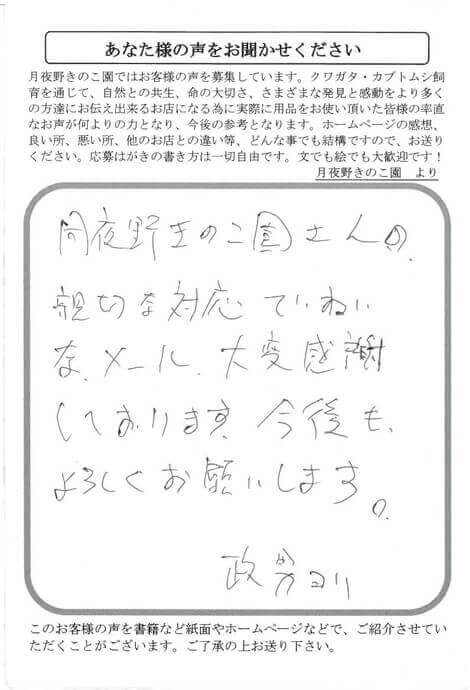 あなた様の声をお聞かせください
月夜野きのこ園ではお客様の声を募集しています。クワガタ・カブトムシ飼
育を通じて、自然との共生、命の大切さ、さまざまな発見と感動をより多く
の方達にお伝え出来るお店になる為に実際に用品をお使い頂いた皆様の率直
なお声が何よりの力となり、今後の参考となります。ホームページの感想、
良い所、悪い所、他のお店との違い等、どんな事でも結構ですので、お送り
ください。応募はがきの書き方は一切自由です。文でも絵でも大歓迎です！
月夜野きのこ園　より
月夜野きのこ園さんの、
親切な対応 ていねい
な、メール、大変感謝
しております。今後も、
よろしくお願いします。
政男ヨリ
このお客様の声を書籍など紙面やホームページなどで、ご紹介させてい
ただくことがございます。ご了承の上お送り下さい。